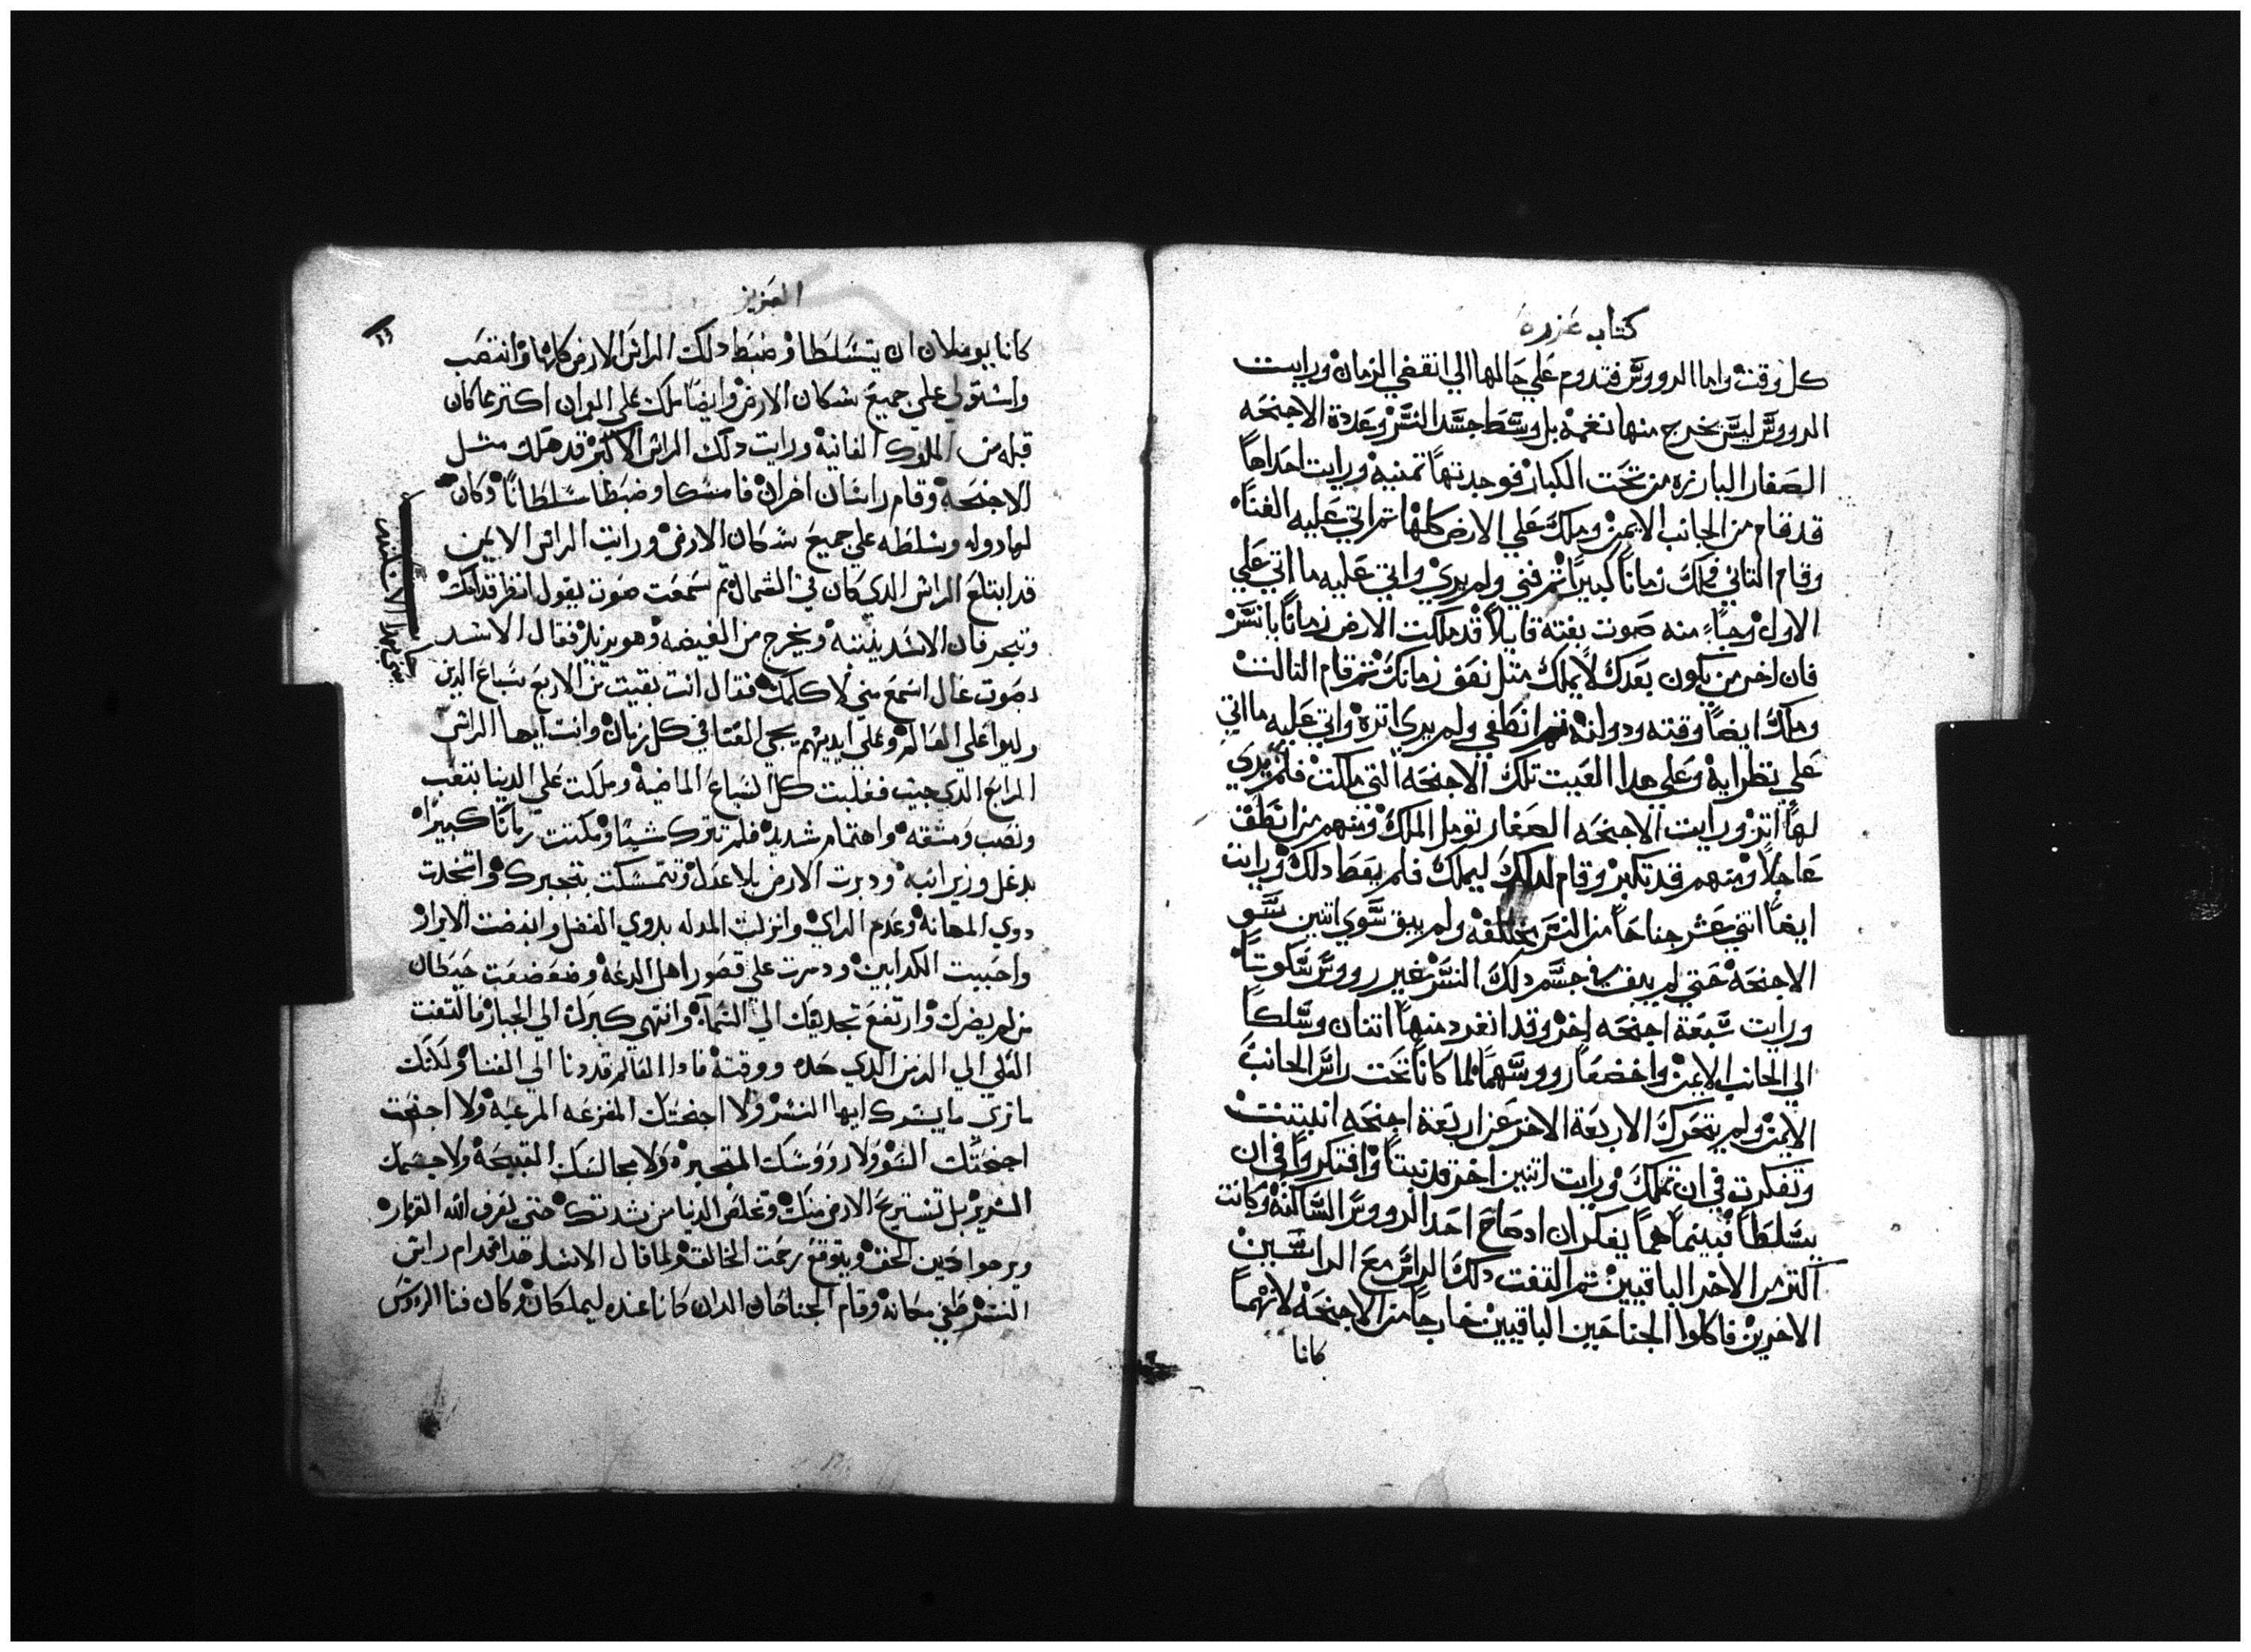 كتاب عزره
كل وقت واما الرووس فتدوم علي حالها الي انقضي الزمان ورايت
الرووس ليس يخرج منها نغمه بل وسط جسد النسر وعددة الاجنحه
الصغار البارزه من تحت الكبار فوجدتها تمنيه ورايت احداها
قد قام من الجانب الايمن وملك علي الارض كلها تم اتي عليه الفناء
وقام التاني وملك زماناً كبيراً تم فني ولم يري واتي عليه ما اتي علي
الاول وجاء منه صوت بغته قايلاً قد ملكت الارض زماناً يا نسر
فان اخر من يكون بعدك لا يملك متل نصف زمانك تم قام التالت
وملك ايضاً وقته ودولته تم انطفي ولم يري اتره واتي عليه ما اتي
علي نظرايه وعلي هدا العيت تلك الاجنحه التي ملكت فلم يري
لها اتر ورايت الاجنحه الصغار تومل الملك ومنهم من انطف
عاجلاً ومنهم قد تكبر وقام لدلك ليملك فلم يعط دلك ورايت
ايضاً اتني عشر جناحاً من النسر مختلفه ولم يبق سوي اتنين سو
الاجنحة حتي لم يبق في جسم دلك النسر غير رووس سكوتاً
ورايت سبعة اجنحه اخر وقد انفرد منها اتنان وسلكا
الي الجانب الايمن واخضعا رووسهما لما كانا تحت راس الجانب
الايمن ولم يتحرك الاربعة الاخر عن اربعة اجنحه انبتت
وتفكرت في ان تملك ورايت اتنين اخر قد نبتا وافتكروا في ان
يتسلطا فبينما هما يفكران اد صاح احد الرووس الساكنه وكانت
اكتر من الاخر الباقيين تم التفت دلك الراس مع الراسين
الاخرين فاكلوا الجناحين الباقيين خارجا من الاجنحة لانهما
كانا
العزيز
كانا يوملان ان يتسلطا وضبط دلك الراس الارض كلها وانتصب
واستولي علي جميع سكان الارض وايضا ملك علي اكتر مما كان
قبله من الملوك الفانية ورايت دلك الراس الاكبر قد هلك متل
الاجنحة وقام راسان اخران فامسكا وضبطا سلطاناً وكان
لها دوله وسلطه علي جميع سكان الارض ورايت الراس الايمن
قد ابتلع الراس الدي كان في الشمال تم سمعت صوت يقول انظر قدامك
فان الاسد ينتبه ويخرج من الغيضه وهو يزير فقال الاسد
بصوت عال اسمع مني لاكلمك فقال انت بقيت من الاربع سباع الدين
وليوا علي العالم وعلي ايديهم يجي الفنا في كل زمان وانت ايها الراس
الرابع الدي جيت فغلبت كل السباع الماضية وملكت علي الدنيا بتعب
ونصب ومشقه واهتمام شديد فلم تترك شيا ومكتت زمانا كبيرا
بدغل ودبرت الارض بلا عدل وتمسكت بتجبرك واتخدت
دوي المهانة وعدم الراي وانزلت المدله بدوي الفضل وابغضت الابرار
واحببت الكدابين ودمرت علي قصور اهل الدعة وضعضعت حيطان
من لم يضرك وارتفع تجديفك الي السماء وانتهي كبرك الي الجبار فالتفت
العلي الي الزمن الدي حده ووقته فادا العالم قد دنا الي الفنا ولدلك
ما تري ما يسرك ايها النسر ولا اجنحتك المفزعه المرعبة ولا اجنحت
اجنحتك السو ولا رووسك المتجبرة ولا مخالبك القبيحة ولا جسمك
الشرير بل تستريح الارض منك وتخلص الدنيا من شدتك حتي يعرف الله القهاره
ويرجوا حين الحق ويتوقع رحمت الخالق ولما قال الاسد هدا قدام راس
النسر طفي مكانه وقام الجناحان اللدان كانا عنده ليملكان وكان فنا الرووس